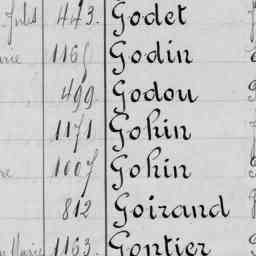 Jules 443. Godet
1165 Godin
499 Godou
1171 Gohin
1007 Gohin
812 Goirand
Marie 1163. Gontier